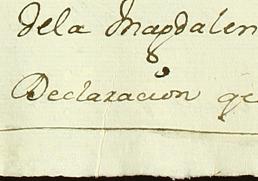 dela Magdalen
Declaracion qe